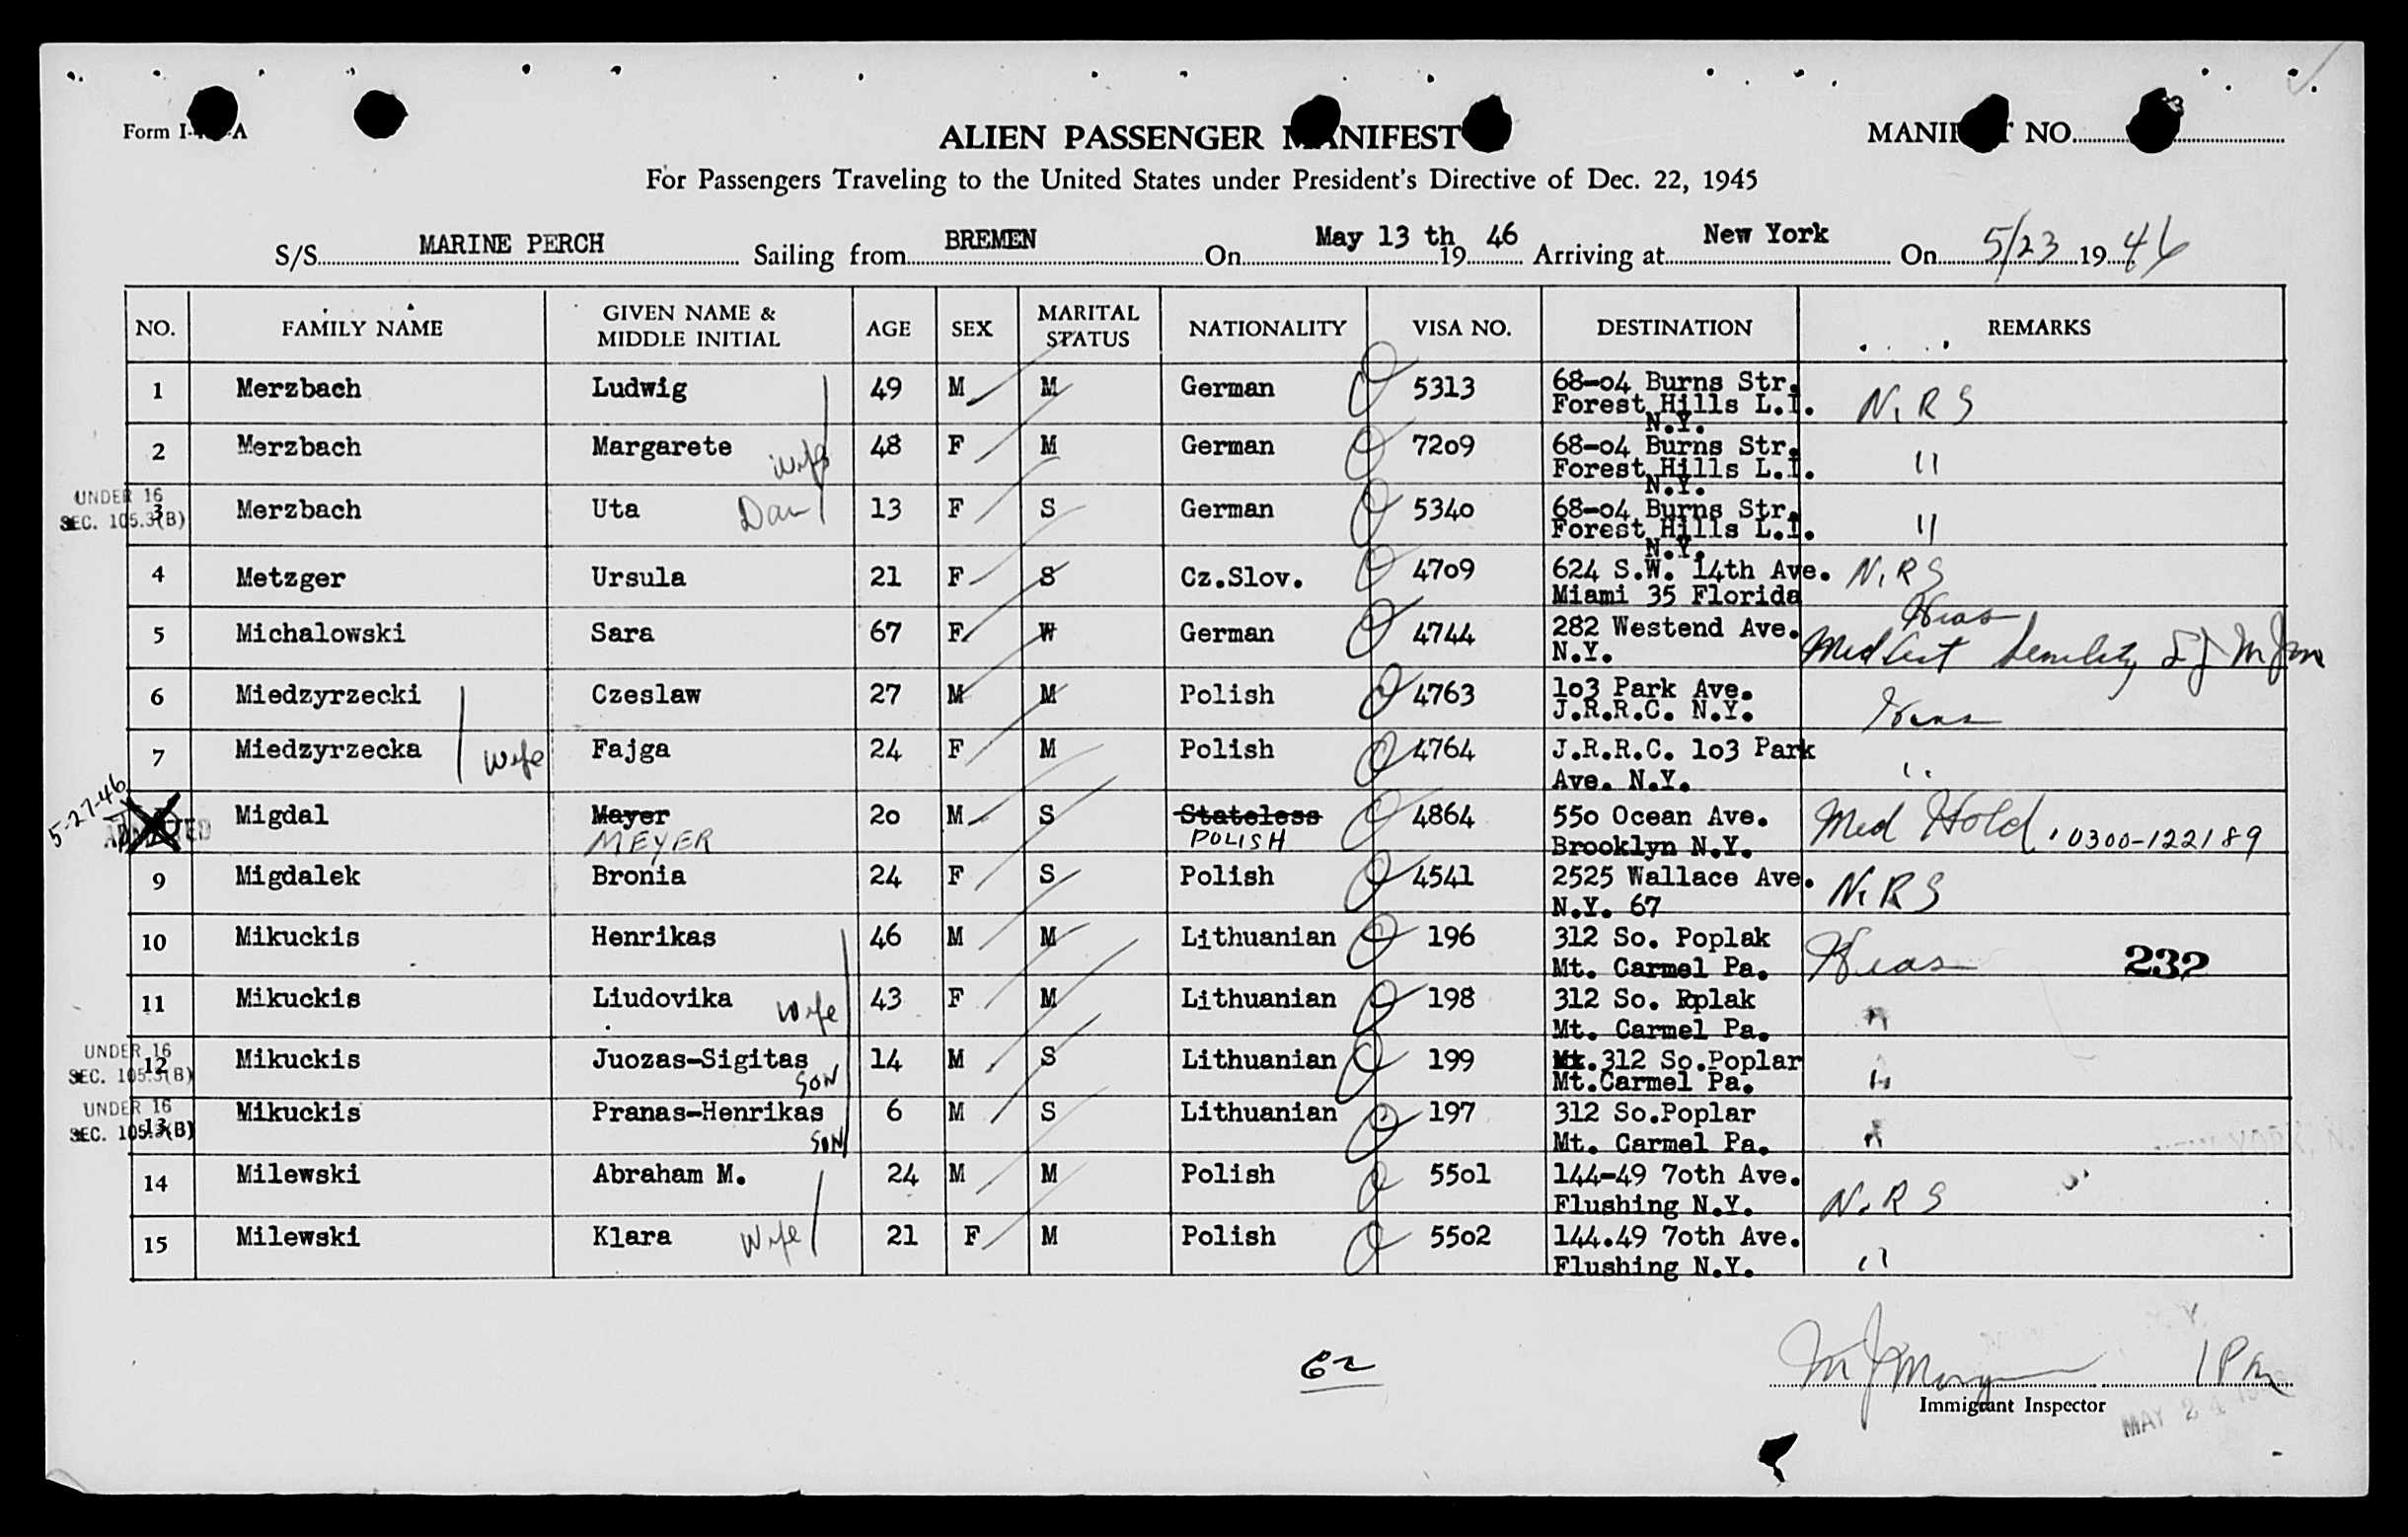 Form I-
A
ALIEN PASSENGER MANIFEST
MANIFEST NO.
For Passengers Traveling to the United States under President's Directive of Dec. 22, 1945
S/S MARINE PERCH Sailing from BREMEN On May 13 th 1946 Arriving at New York On 5/23 1946
NO. FAMILY NAME GIVEN NAME & MIDDLE INITIAL AGE SEX MARITAL STATUS NATIONALITY VISA NO. DESTINATION REMARKS
1 Merzbach Ludwig 49 M M German 5313 68-04 Burns Str. N.R S
Forest Hills L.I.
N.Y.
2 Merzbach Margarete wife 48 F M German 7209 68-04 Burns Str. "
Forest Hills L.I.
N.Y.
UNDER 16
SEC. 105.3(B)
3 Merzbach Uta Dau 13 F S German 5340 68-04 Burns Str. "
Forest Hills L.I.
N.Y.
4 Metzger Ursula 21 F S Cz.Slov. 4709 624 S.W. 14th Ave. N.R S
Miami 35 Florida
5 Michalowski Sara 67 F W German 4744 282 Westend Ave. Hias
N.Y. Med Cert Senility
6 Miedzyrzecki Czeslaw 27 M M Polish 4763 103 Park Ave. Hias
J.R.R.C. N.Y.
7 Miedzyrzecka wife Fajga 24 F M Polish 4764 J.R.R.C. 103 Park "
Ave. N.Y.
5-27-46
ADMITTED
Migdal Mayer 20 M S Stateless 4864 550 Ocean Ave. Med Hold, 0300-122189
MEYER POLISH Brooklyn N.Y.
9 Migdalek Bronia 24 F S Polish 4541 2525 Wallace Ave. N.R S
N.Y. 67
10 Mikuckis Henrikas 46 M M Lithuanian 196 312 So. Poplak Hias 232
Mt. Carmel Pa.
11 Mikuckis Liudovika wife 43 F M Lithuanian 198 312 So. Poplak "
Mt. Carmel Pa.
UNDER 16
SEC. 105.3(B)
12 Mikuckis Juozas-Sigitas SON 14 M S Lithuanian 199 Mt. 312 So.Poplar "
Mt.Carmel Pa.
UNDER 16
SEC. 105.3(B)
13 Mikuckis Pranas-Henrikas SON 6 M S Lithuanian 197 312 So.Poplar "
Mt. Carmel Pa.
14 Milewski Abraham M. 24 M M Polish 5501 144-49 70th Ave. N.R S
Flushing N.Y.
15 Milewski Klara Wife 21 F M Polish 5502 144.49 70th Ave. "
Flushing N.Y.
M J Morgan
Immigrant Inspector
MAY 24